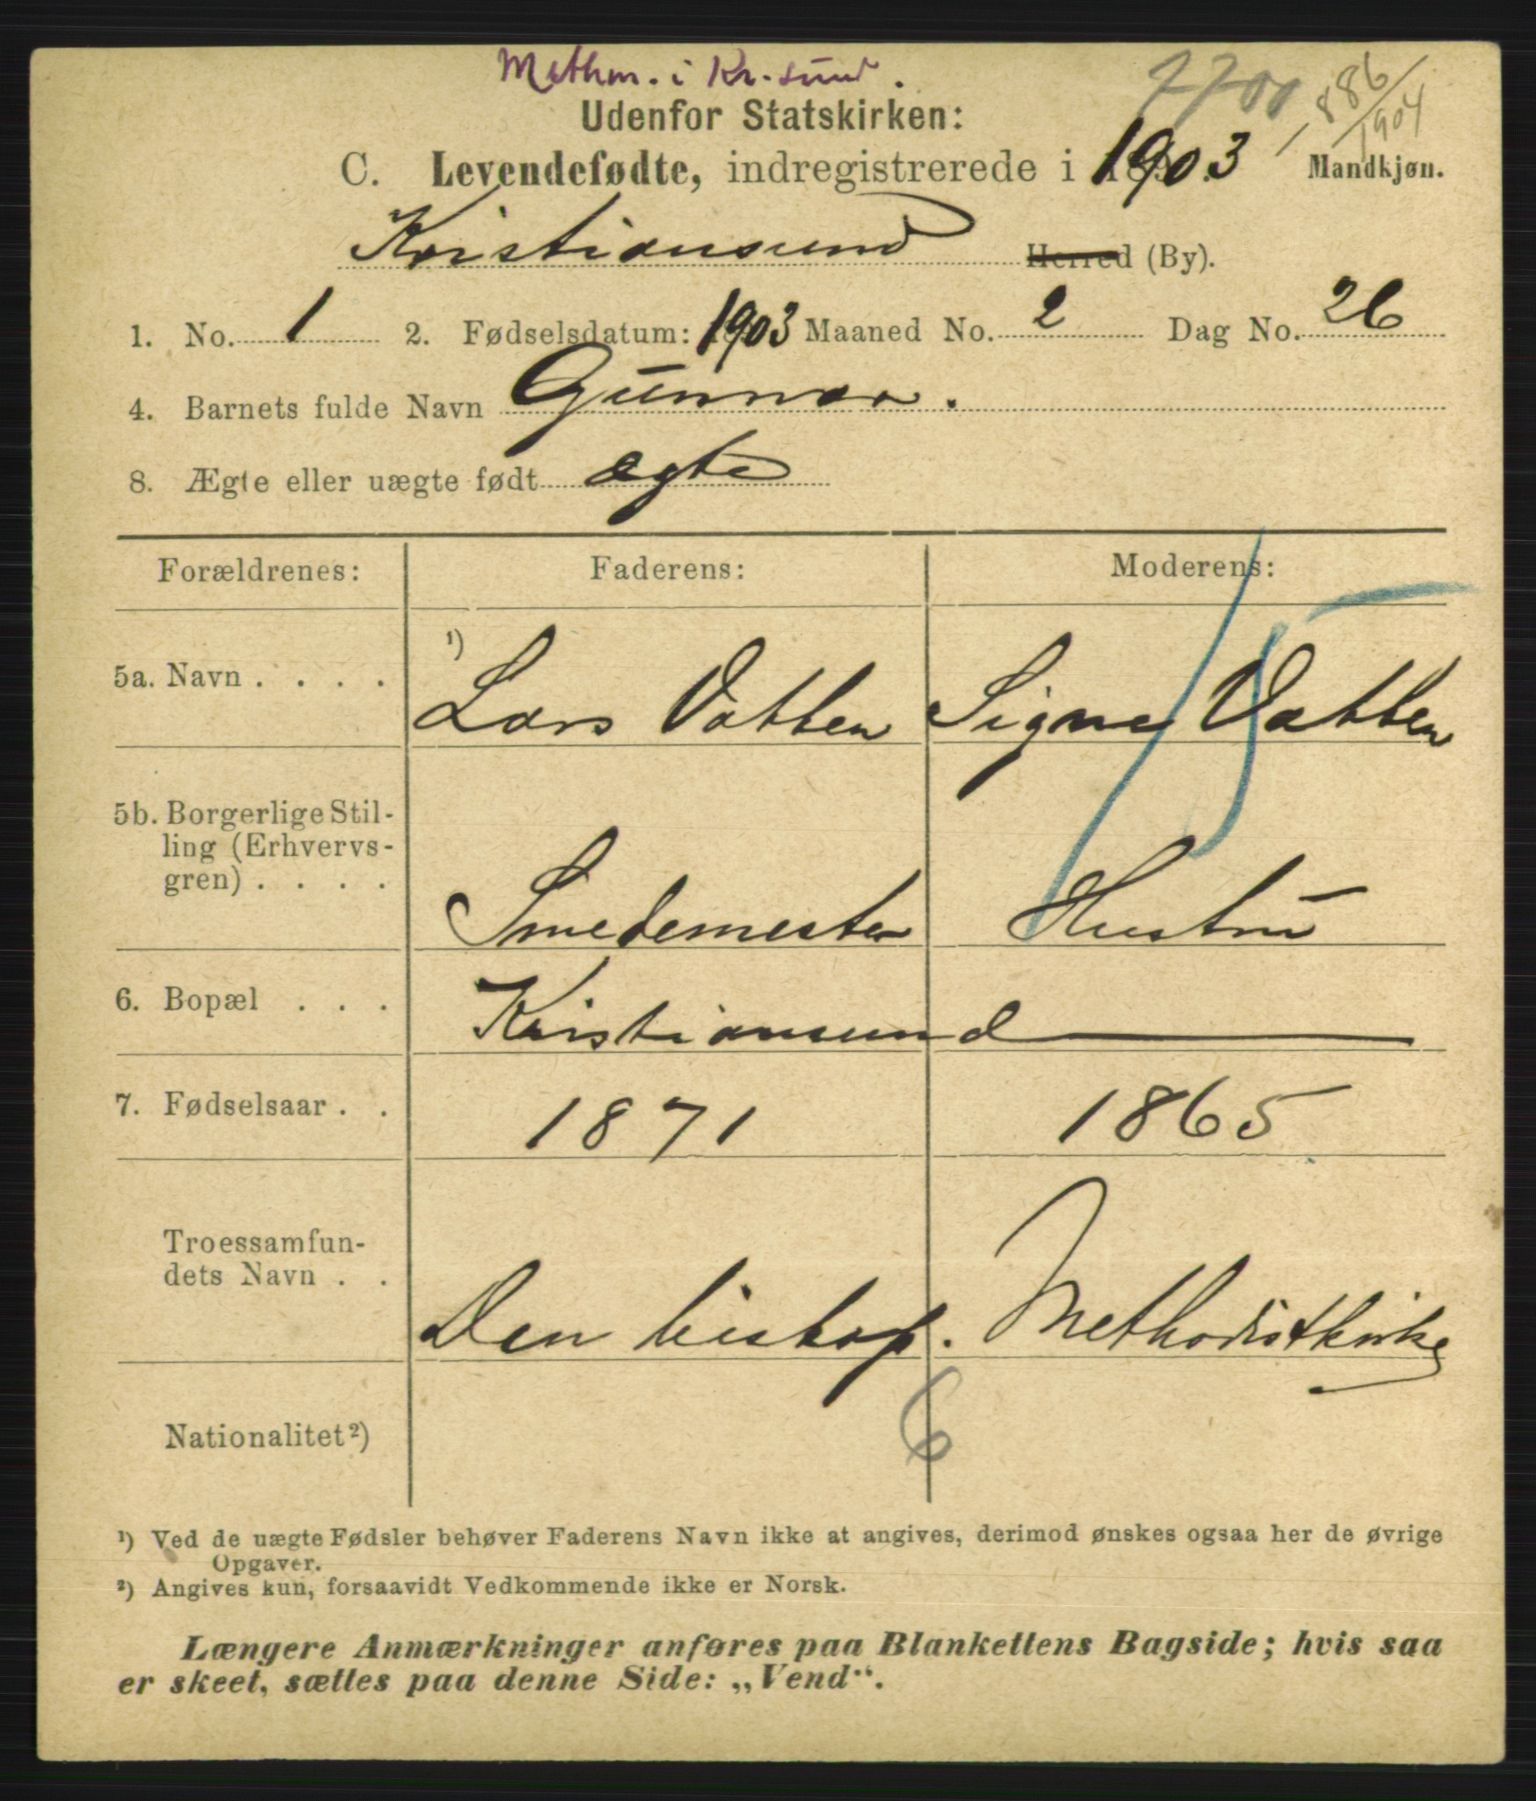 Methm. i Kr.sund.
7700
886/1904
Udenfor Statskirken:
C. Levendefødte, indregistrerede i 1903 Mandkjøn.
Kristiansund Herred (By).
1. No. 1 2. Fødselsdatum: 1903 Maaned No. 2 Dag No. 26
4. Barnets fulde Navn Gunnar.
8. Ægte eller uægte født ægte
Forældrenes: Faderens: Moderens:
5a. Navn . . . . ¹) Lars Vatten Signe Vatten
5b. Borgerlige Stil-
ling (Erhvervs-
gren) . . . . Smedemester Hustru
6. Bopæl . . . Kristiansund
7. Fødselsaar . . 1871 1865
Troessamfun-
dets Navn . . Den biskop. Methodistkirke
6
Nationalitet²)
¹) Ved de uægte Fødsler behøver Faderens Navn ikke at angives, derimod ønskes ogsaa her de øvrige
Opgaver.
²) Angives kun, forsaavidt Vedkommende ikke er Norsk.
Længere Anmærkninger anføres paa Blankettens Bagside; hvis saa
er skeet, sættes paa denne Side: „Vend“.